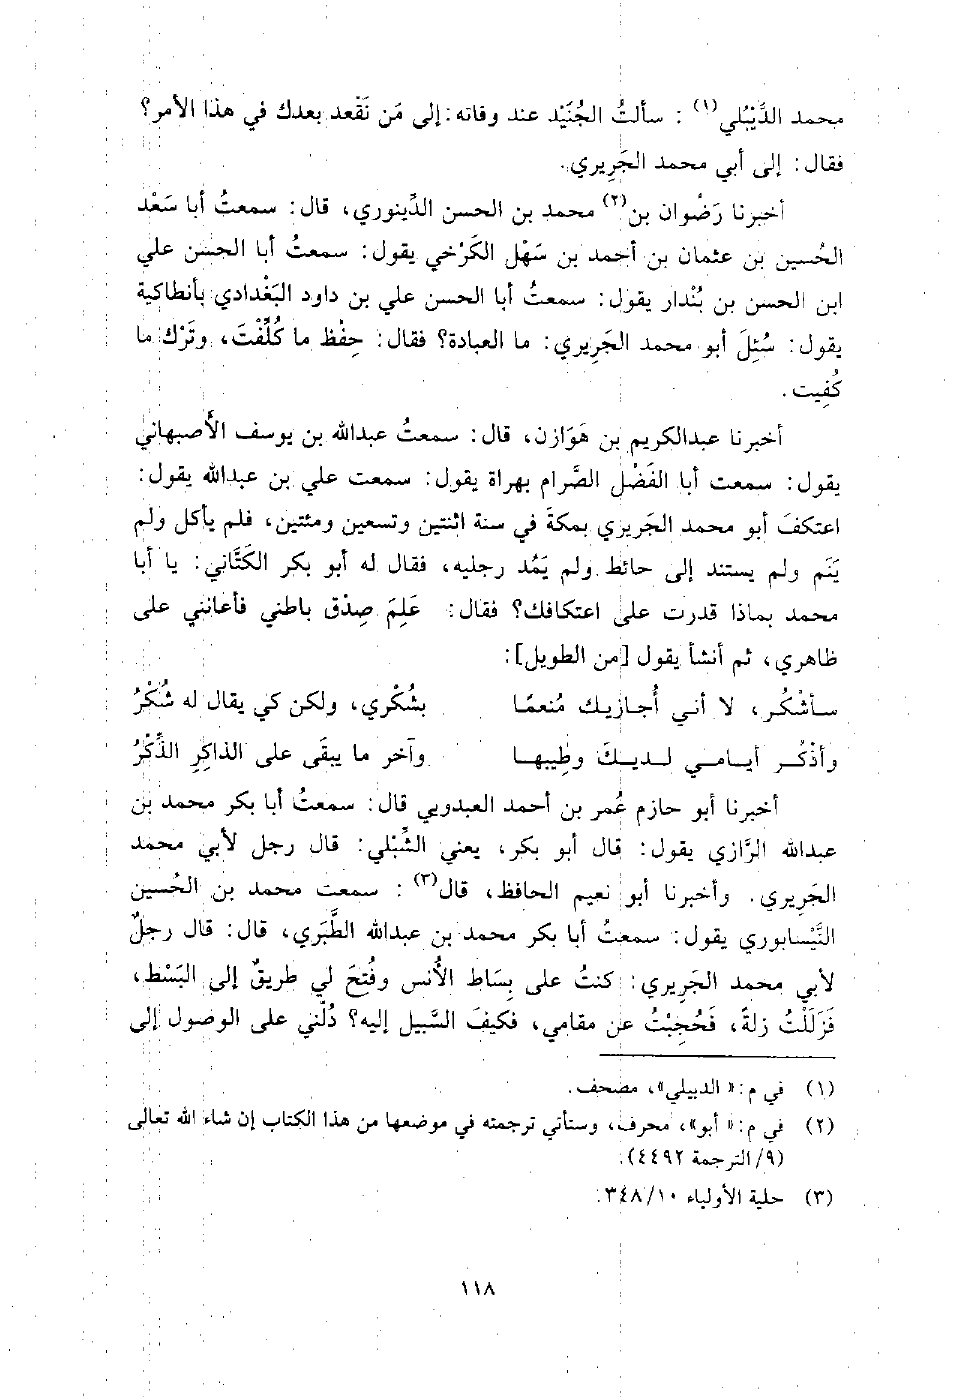 محمد الدَّيْبُلي(١) : سألتُ الجُنَيْد عند وفاته: إلى مَن نَقْعد بعدك في هذا الأمر؟
فقال: إلى أبي محمد الجَرِيري.
أخبرنا رَضْوان بن(٢) محمد بن الحسن الدِّينوري، قال: سمعتُ أبا سَعْد
الحُسين بن عثمان بن أحمد بن سَهْل الكَرْخي يقول: سمعتُ أبا الحسن علي
ابن الحسن بن بُنْدار يقول: سمعتُ أبا الحسن علي بن داود البَغْدادي بأنطاكية
يقول: سُئِلَ أبو محمد الجَرِيري: ما العبادة؟ فقال: حِفْظ ما كُلِّفْتَ، وتَرْك ما
كُفِيت.
أخبرنا عبدالكريم بن هَوَازن، قال: سمعتُ عبدالله بن يوسف الأصبهاني
يقول: سمعت أبا الفَضْل الصَّرام بهراة يقول: سمعت علي بن عبدالله يقول:
اعتكفَ أبو محمد الجَرِيري بمكةَ في سنة اثنتين وتسعين ومئتين، فلم يأكل ولم
يَنَم ولم يستند إلى حائط ولم يَمُد رجليه، فقال له أبو بكر الكَتَّاني: يا أبا
محمد بماذا قدرت على اعتكافك؟ فقال: عَلِمَ صِدْق باطني فأعانني على
ظاهري، ثم أنشأ يقول [من الطويل]:
سأشْكُر، لا أني أُجازيك مُنعمًا بشُكْري، ولكن كي يقال له شُكْرُ
وأذْكُر أيامي لديكَ وطِيبها وآخر ما يبقَى على الذاكِرِ الذِّكْرُ
أخبرنا أبو حازم عُمر بن أحمد العبدويي قال: سمعتُ أبا بكر محمد بن
عبدالله الرَّازي يقول: قال أبو بكر، يعني الشِّبْلي: قال رجل لأبي محمد
الجَرِيري. وأخبرنا أبو نعيم الحافظ، قال(٣) : سمعت محمد بن الحُسين
النَّيْسابوري يقول: سمعتُ أبا بكر محمد بن عبدالله الطَّبَري، قال: قال رجلٌ
لأبي محمد الجَرِيري: كنتُ على بِسَاط الأُنس وفُتِحَ لي طريقٌ إلى البَسْط،
فَزَلَلْتُ زلةً، فَحُجِبْتُ عن مقامي، فكيفَ السَّبيل إليه؟ دُلّني على الوصول إلى
(١) في م: «الدبيلي»، مصحف.
(٢) في م: «أبو»، محرف، وستأتي ترجمته في موضعها من هذا الكتاب إن شاء الله تعالى
(٩/ الترجمة ٤٤٩٢).
(٣) حلية الأولياء ١٠/ ٣٤٨.
١١٨